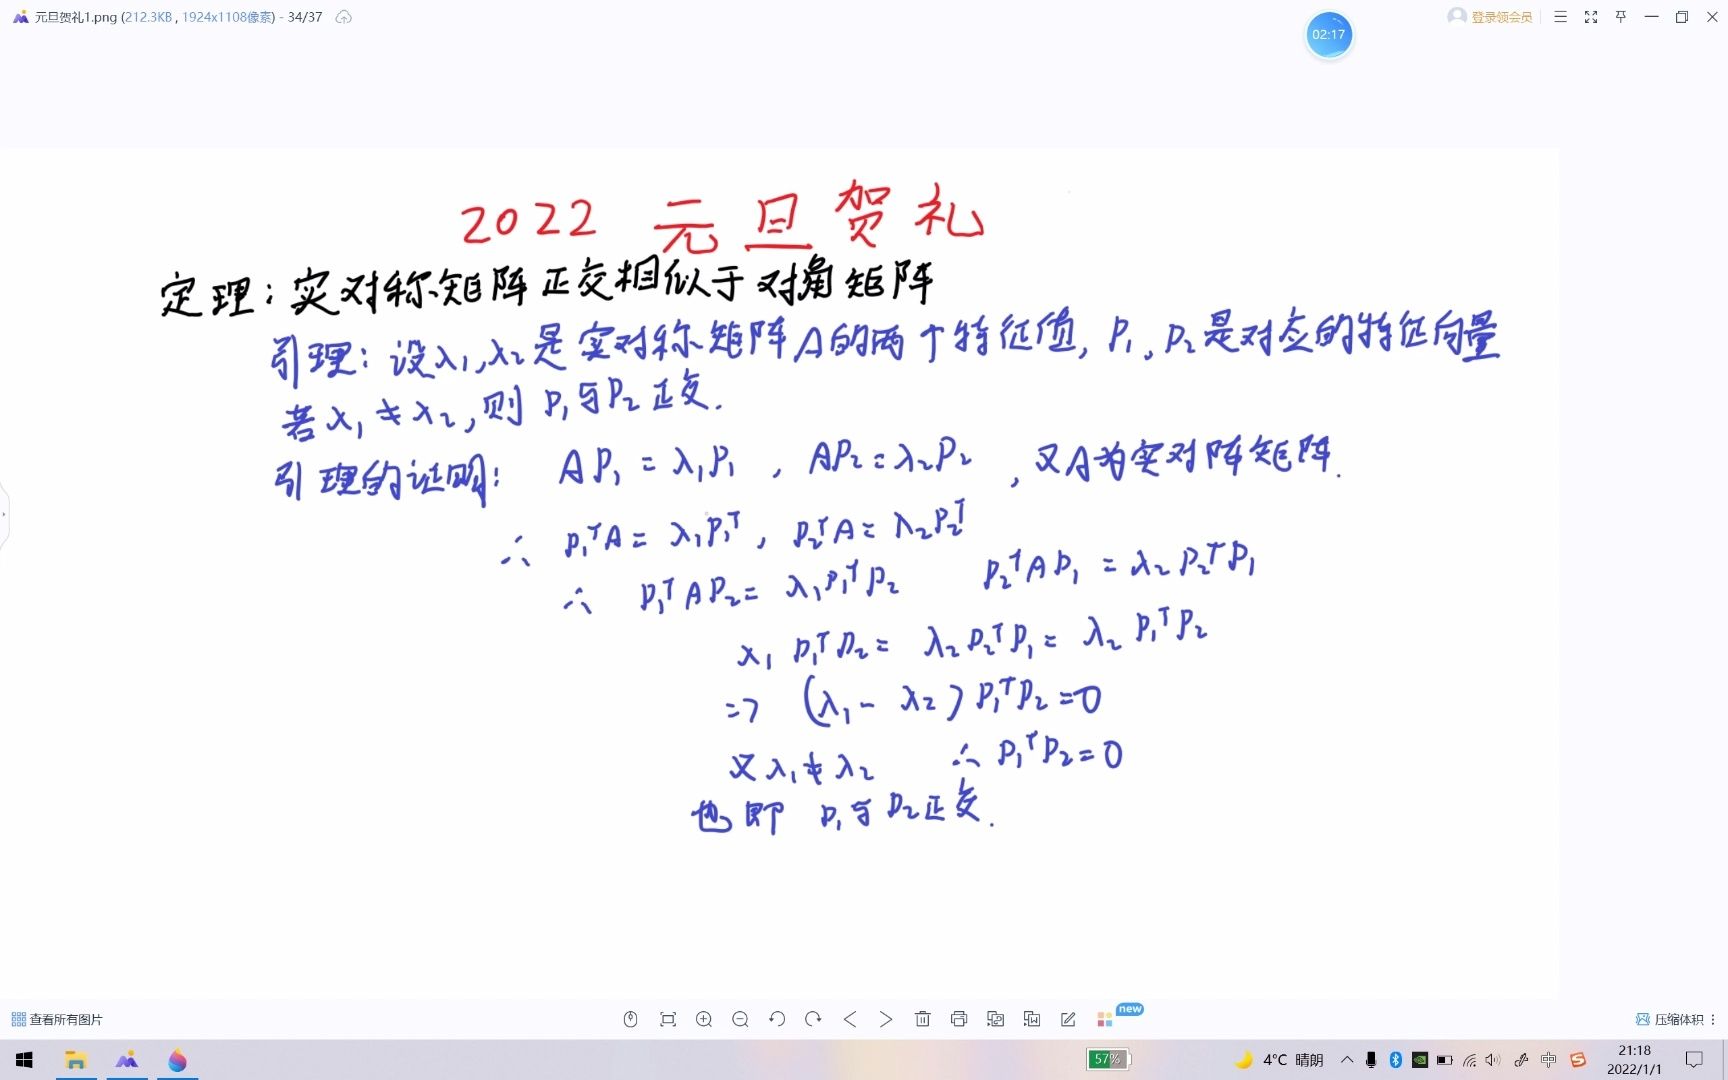 元旦贺礼1.png (212.3KB , 1924x1108像素) - 34/37
02:17
登录领会员
2022 元旦贺礼
定理：实对称矩阵正交相似于对角矩阵
引理：设λ₁,λ₂是实对称矩阵A的两个特征值, P₁, P₂是对应的特征向量
若λ₁≠λ₂,则 P₁与P₂正交.
引理的证明: AP₁=λ₁P₁ , AP₂=λ₂P₂ , 又A为实对阵矩阵.
∴ P₁ᵀA=λ₁P₁ᵀ, P₂ᵀA=λ₂P₂ᵀ
∴ P₁ᵀAP₂=λ₁P₁ᵀP₂ P₂ᵀAP₁=λ₂P₂ᵀP₁
λ₁P₁ᵀP₂=λ₂P₂ᵀP₁=λ₂P₁ᵀP₂
=> (λ₁-λ₂)P₁ᵀP₂=0
又λ₁≠λ₂ ∴P₁ᵀP₂=0
也即 P₁与P₂正交.
查看所有图片
new
压缩体积
57%
4°C 晴朗
中
21:18
2022/1/1